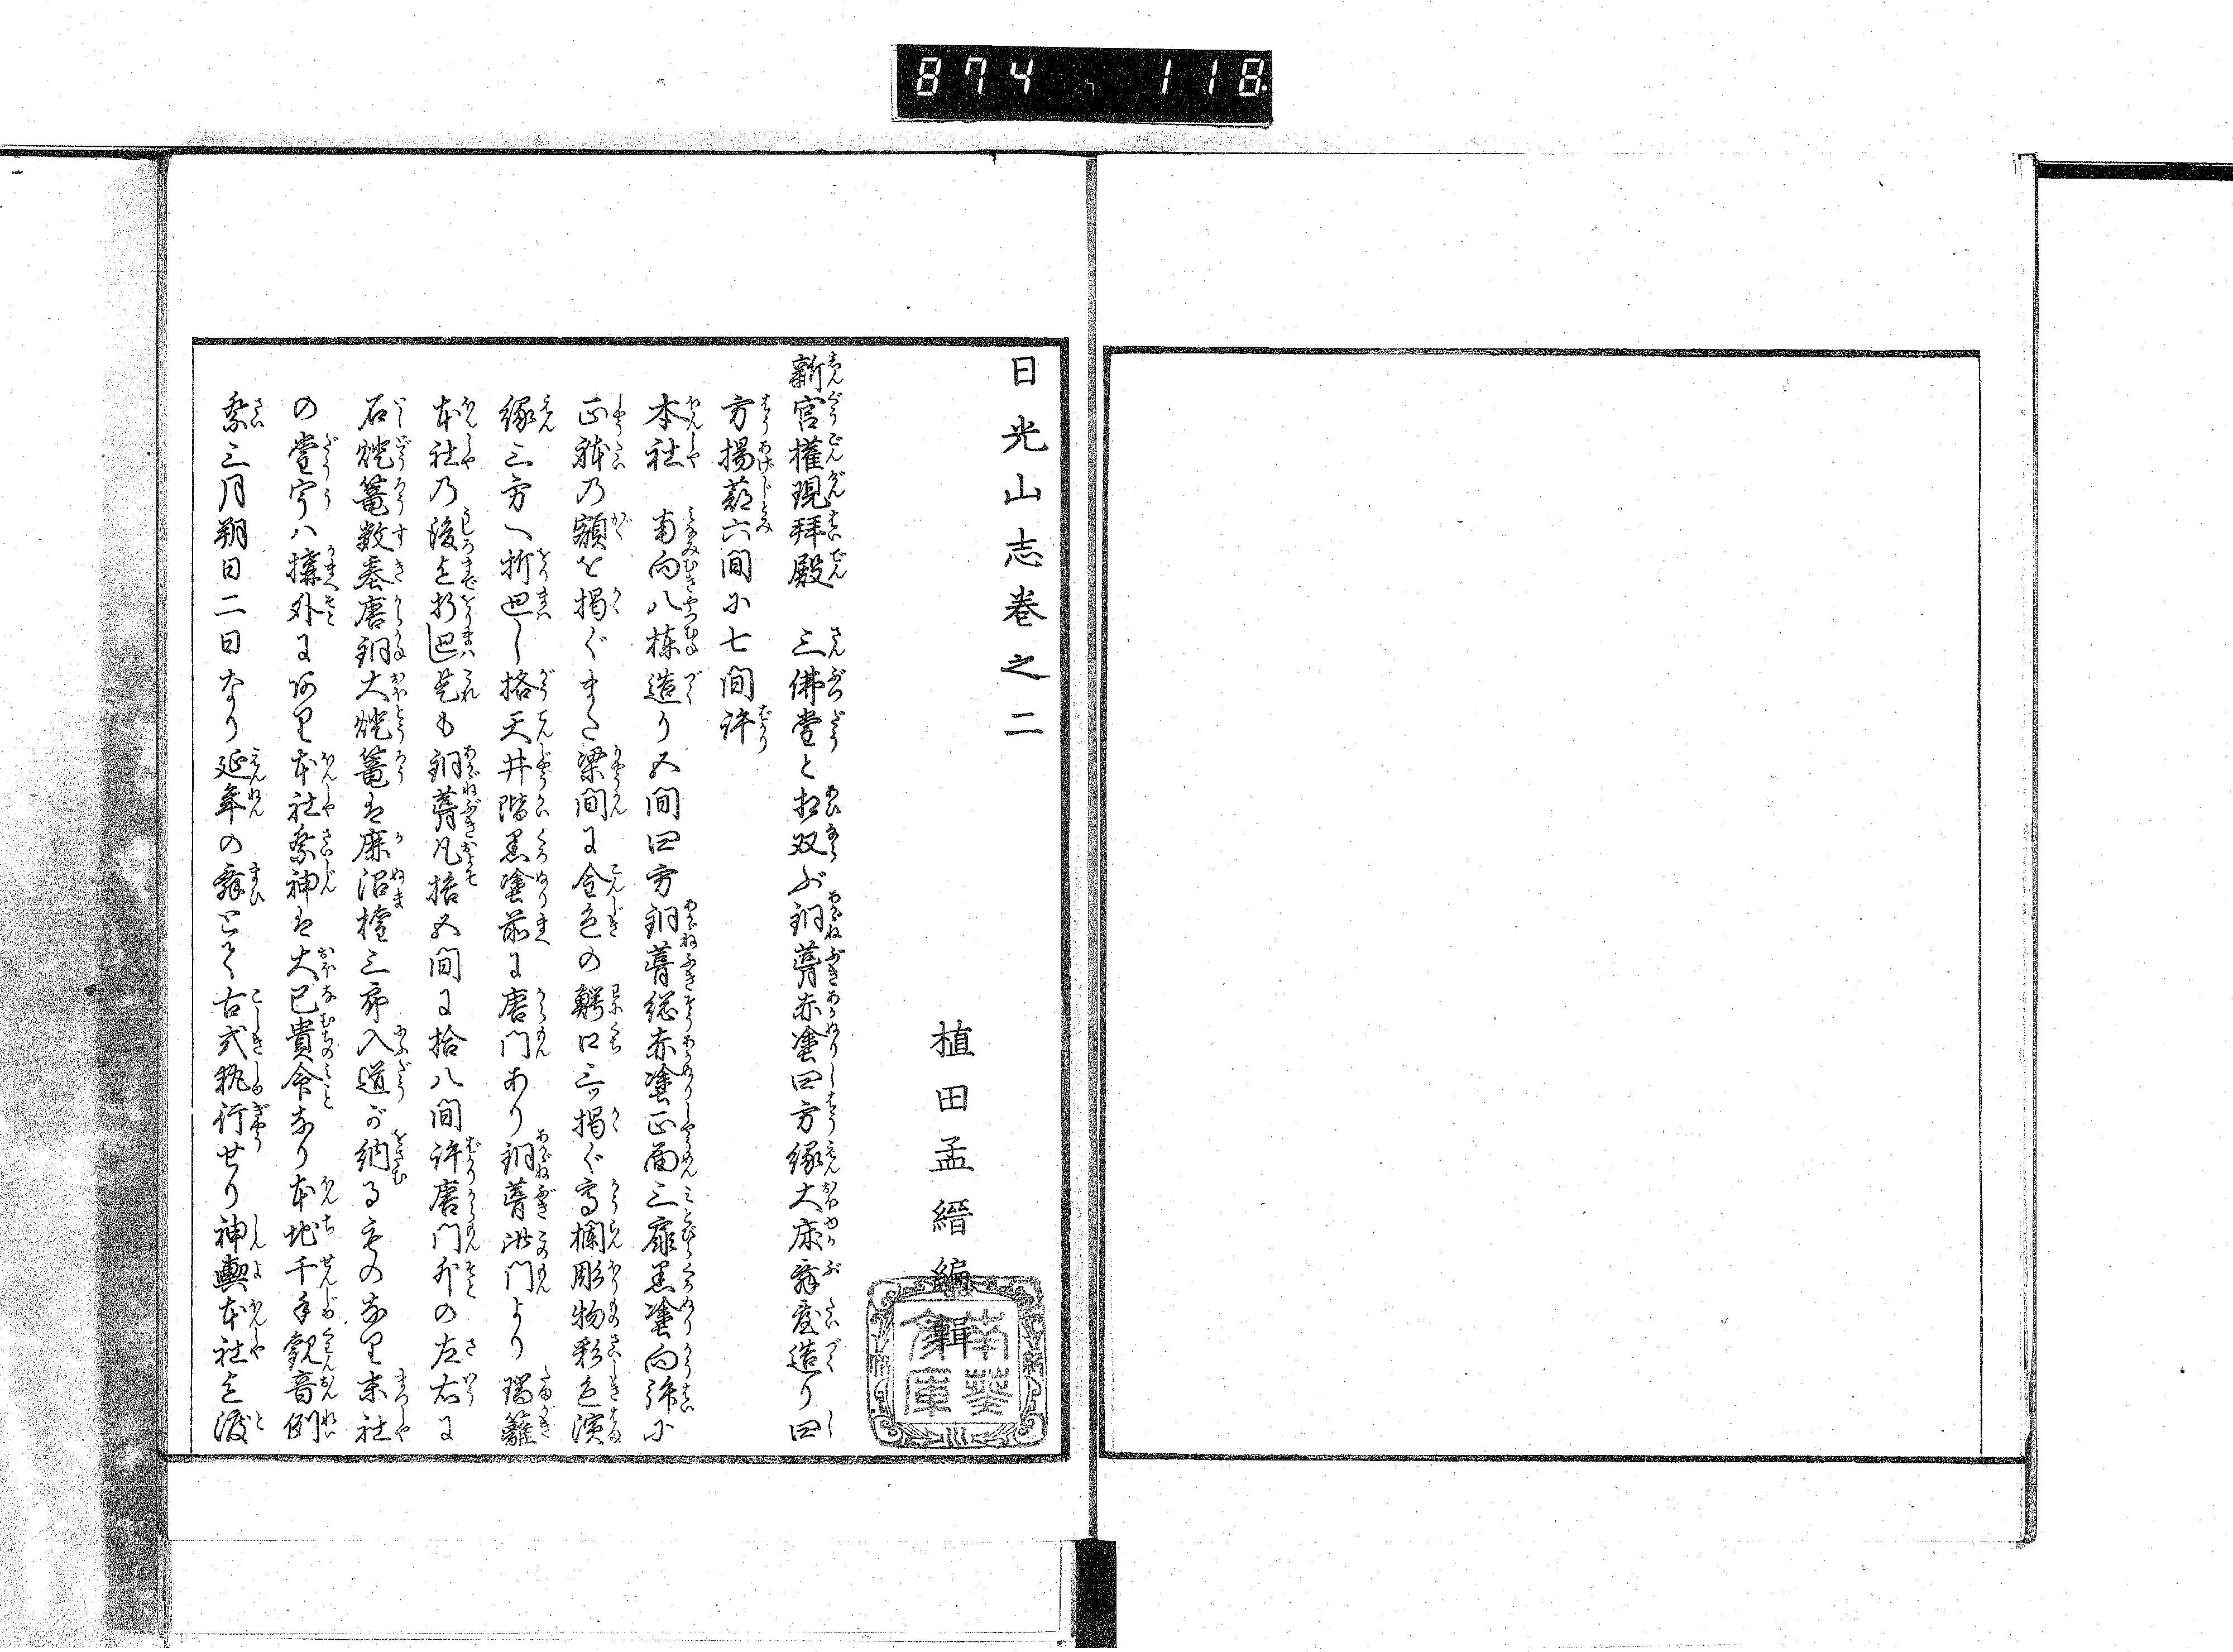 874 118
日光山志巻之二
植田孟縉編輯
新宮權現拜殿 三佛堂と相双ぶ銅葺赤塗四方縁大床舞臺造り四
方揚蔀六間に七間許
本社 南向八棟造り五間四方銅葺総赤塗正面三扉黒塗向拝に
正躰の額を掲ぐまた梁間に金色の鰐口三ツ掲ぐ高欄彫物彩色濱
縁三方へ折廻し格天井階黒塗前に唐門あり銅葺此門より瑞籬
本社の後まで折廻是も銅葺凡拾五間に拾八間許唐門外の左右に
石燈篭数基唐銅大燈篭は鹿沼権三郎入道が納るものなり末社
の堂宇ハ構外にあり本社祭神は大己貴命なり本地千手観音例
祭三月朔日二日なり延年の舞とて古式執行せり神輿本社を渡
南葵文庫